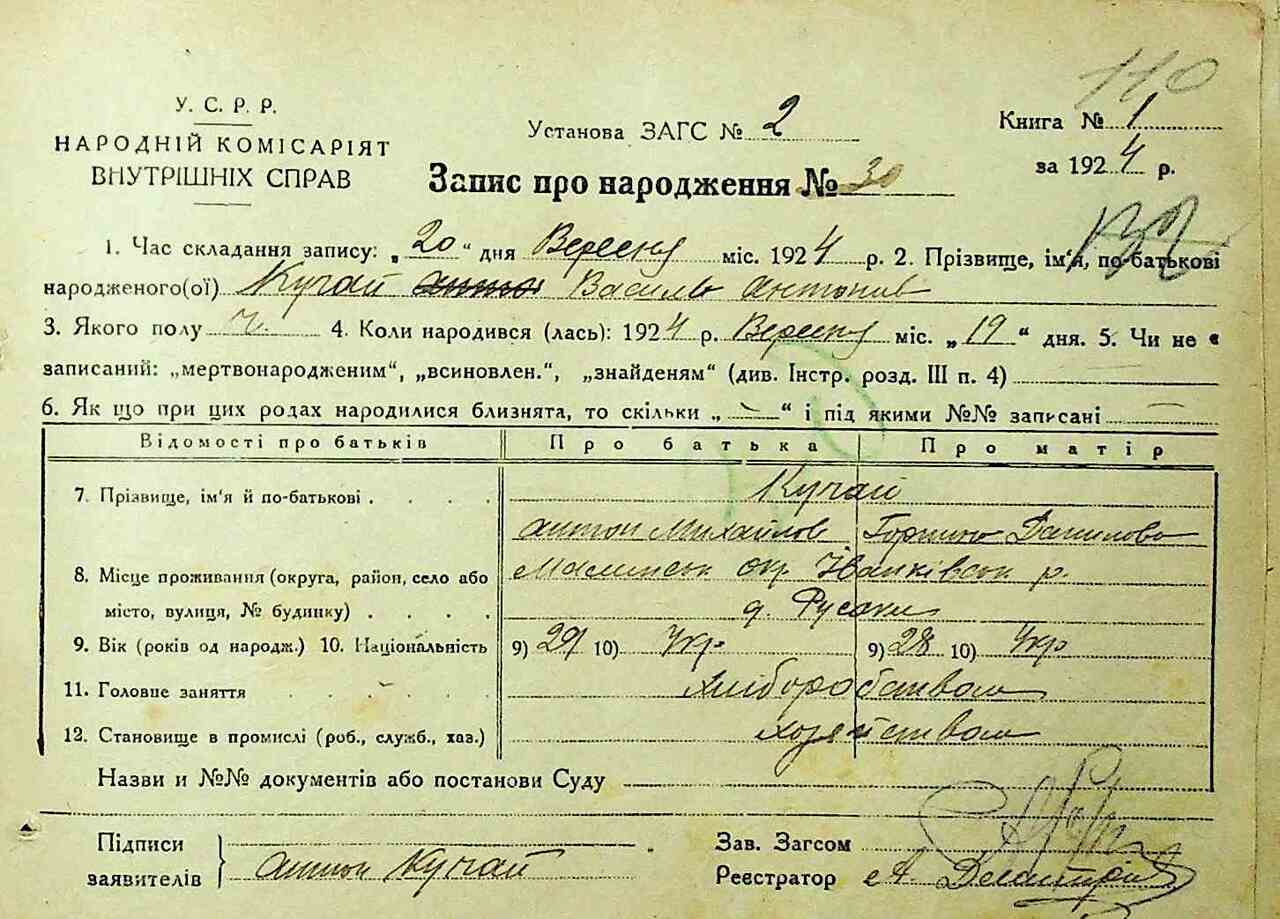 110
У. С. Р. Р.
НАРОДНІЙ КОМІСАРІЯТ
ВНУТРІШНІХ СПРАВ
Установа ЗАГС № 2
Книга № 1
за 1924 р.
Запис про народження № 30
1. Час складання запису: „20“ дня Вересня міс. 1924 р. 2. Прізвище, ім'я, по-батькові
народженого(ої) Кучай Василь Антонів
3. Якого полу ч. 4. Коли народився (лась): 1924 р. Вересня міс. „19“ дня. 5. Чи не є
записаний: „мертвонародженим“, „всиновлен.“, „знайденям“ (див. Інстр. розд. III п. 4)
6. Як що при цих родах народилися близнята, то скільки „—“ і під якими №№ записані —
Відомості про батьків Про батька Про матір
7. Прізвище, ім'я й по-батькові . . . . Кучай
антон Михайлов Данилова
8. Місце проживання (округа, район, село або Малинськ окр Іванківськ р.
місто, вулиця, № будинку) . . . . д. Русаки
9. Вік (років од народж.) 10. Національність 9) 29 10) Укр. 9) 28 10) Укр
11. Головне заняття . . . . . хліборобством
12. Становище в промислі (роб., служб., хаз.) хозяйством
Назви и №№ документів або постанови Суду
Підписи
заявителів } антон Кучай
Зав. Загсом
Реєстратор А.